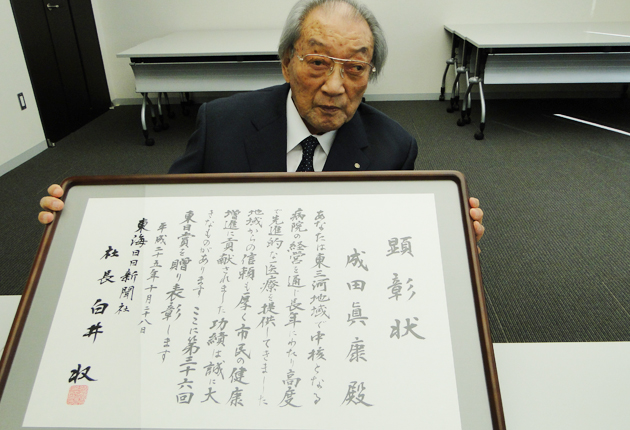 顕彰状
成田眞康殿
あなたは東三河地域で中核となる
病院の経営を通し長年にわたり高度
で先進的な医療を提供してきました
地域からの信頼も厚く市民の健康
増進に貢献されました功績は誠に大
きなものがあります ここに第三十六回
東日賞を贈り表彰します
平成二十五年十月二十八日
東海日日新聞社
社長 白井 収